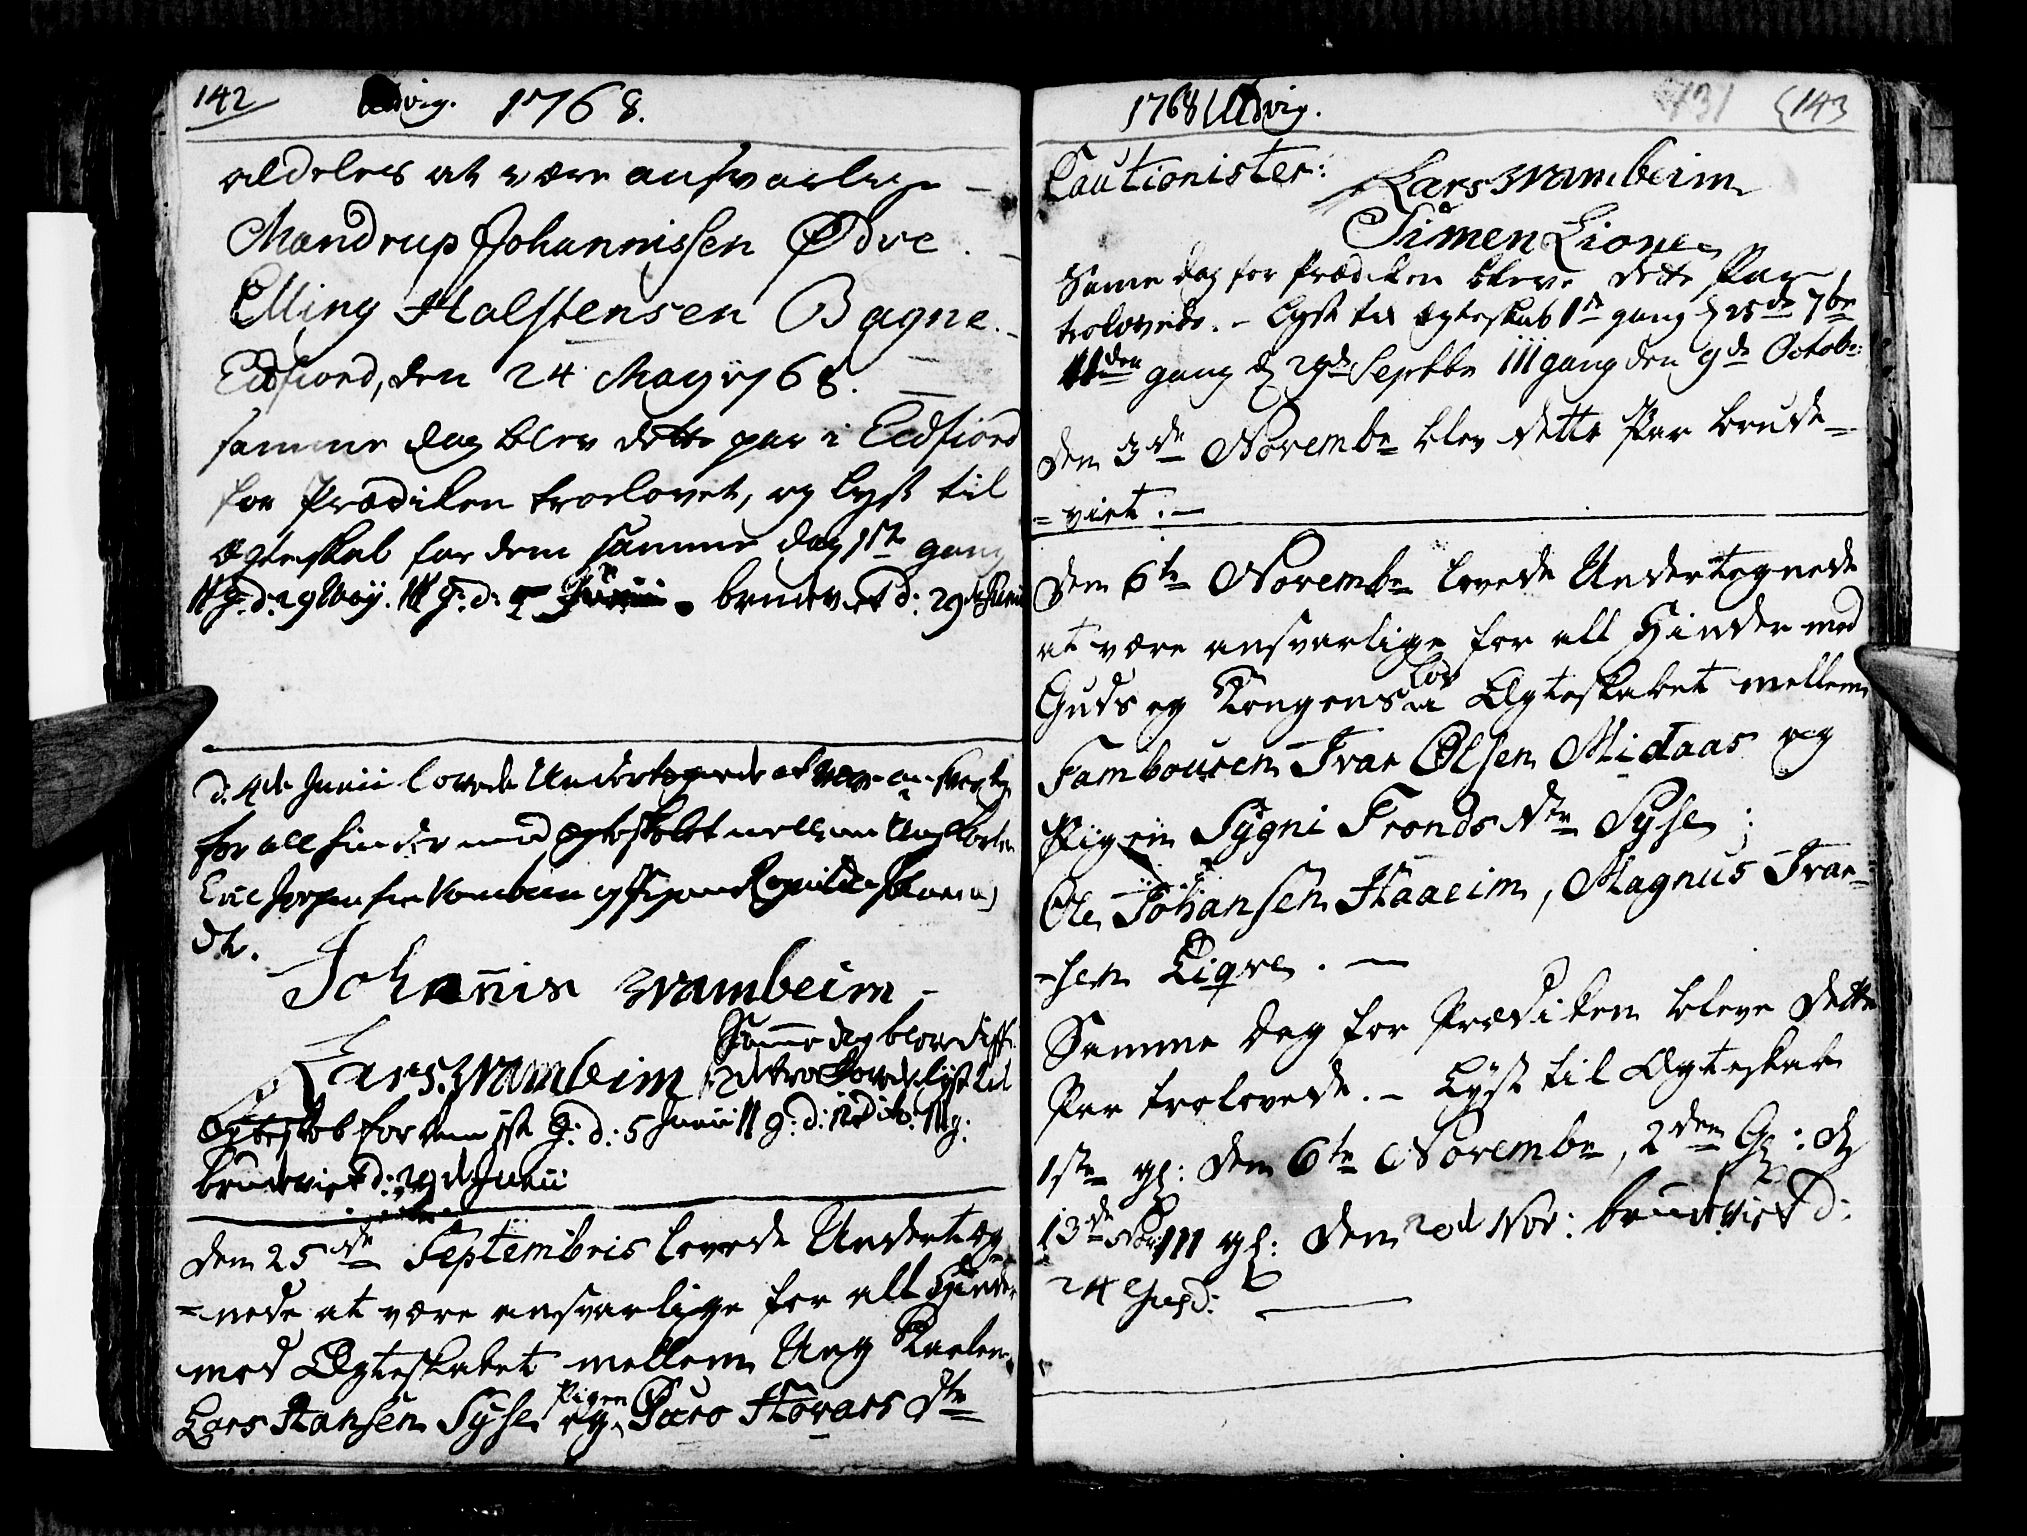 142 Udvig. 1768.
aldeles at være ansvarlige –
Mandrup Johannissen Ødve.
Elling Halstensen Bagne.
Eidfiord, den 24 May 1768.
samme dag blev dette par i Eidfiord
for Prædiken troelovet, og lyst til
Ægteskab for dem samme dag 1ste gang
II g. d: 29 May. III g. d: 5 Junii. brudeviet d: 29de Junii
d. 4de Junii lovede Undertegnede at være ansvarlige
for all hinder med Ægteskabet mellem Ung Karlen
Eric Vambeim og Pigen
Dtr.
Johannis Wambeim
Samme dag blev diss:
Lars Wambeim
trolovede lyst til
Ægteskab for dem 1ste G: d: 5 Junii II g: d: 12 dito. III g:
brudeviet d: 29de Junii
Den 25de Septembris lovede Underteg
=nede at være ansvarlige for all Hinder
med Ægteskabet mellem Ung Karlen
Lars Hansen Syse og Pigen Guro Hovars Dtr
1768 Udvig. 131 143
Cautionister: Lars Wambeim
Simen Lione
Same dag for Prædiken bleve dette Par
trolovede. – Lyst til Ægteskab 1ste gang d 25de 7br
IIden gang d 29de Septbr III gang den 9de Octob:
Den 3de Novembr blev dette Par brude=
=viet. –
Den 6te Novembr lovede Undertegnede
at være ansvarlige for all Hinder med
Guds og Kongens Lov i Ægteskabet mellem
Tambouren Ivar Olsen Midaas og
Pigen Sygni Tronds Dtr Syse;
Ole Johansen Haaeim, Magnus Ivar=
=sen Lione. –
Samme Dag for Prædiken bleve dette
Par trolovede. – Lyst til Ægteskab
1ste g: den 6te Novembr, 2den G: d
13de Nov: III g: den 20d Nov: brudeviet d:
24 Ejusd: